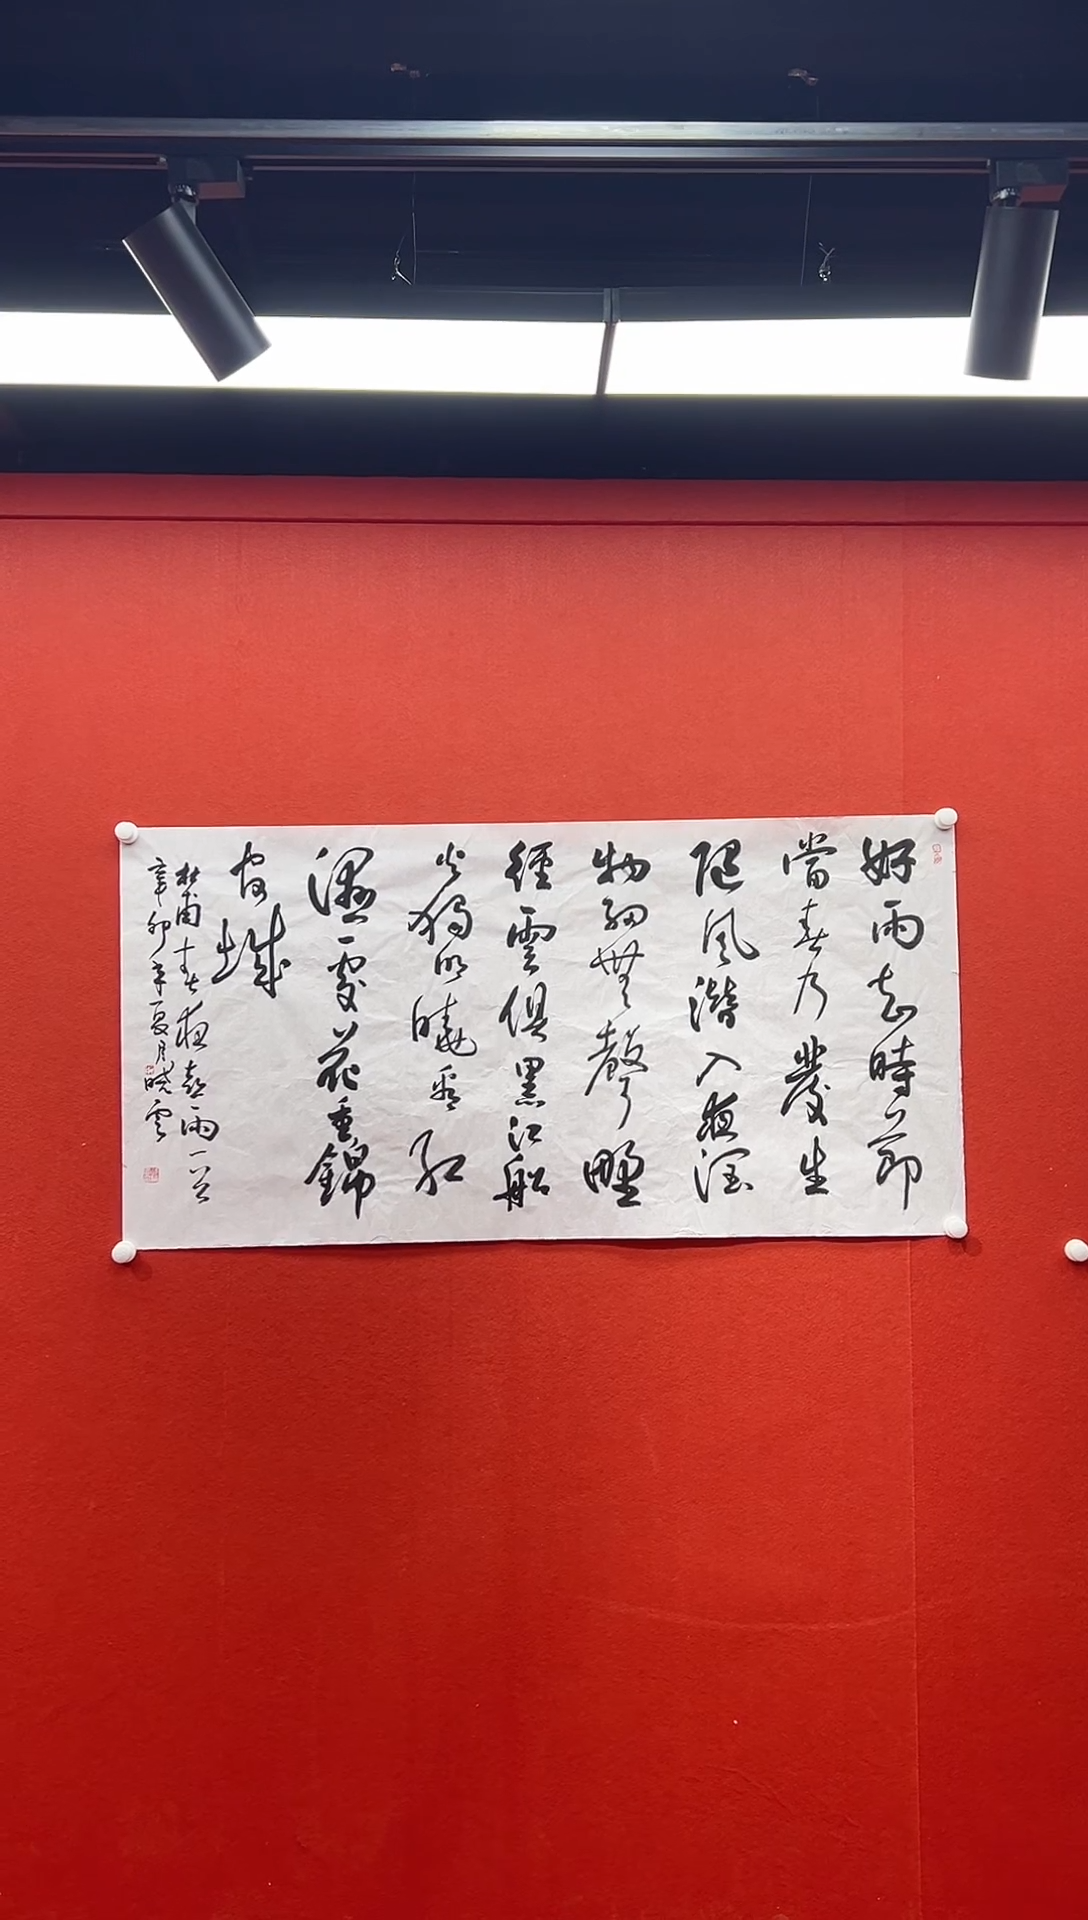 好雨知時節
當春乃發生
隨風潛入夜潤
物細無聲野
徑雲俱黑江船
火獨明曉看紅
濕處花重錦
官城
杜甫春夜喜雨一首
辛卯年夏月曉雲